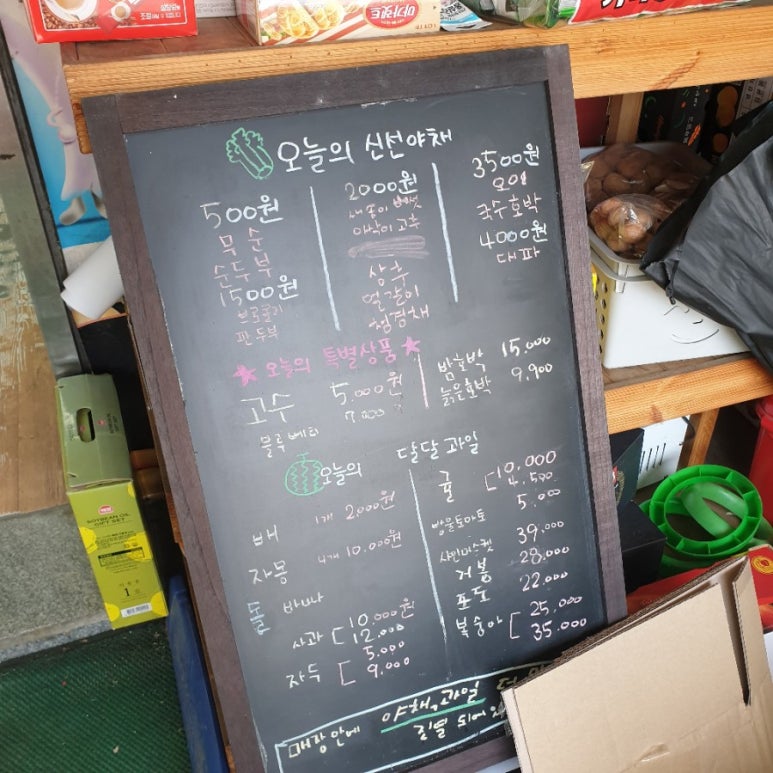 오늘의 신선야채
500원
무순
순두부
1500원
브로콜리
판두부
2000원
새송이버섯
아삭이고추
상추
얼갈이
청경채
3500원
오이
국수호박
4000원
대파
오늘의 특별상품
고수 5.000원
블루베리 7.000원
밤호박 15.000
늙은호박 9.900
오늘의 달달 과일
배 1개 2000원
자몽 4개 10.000원
돌 바나나
사과 10.000원
12.000
자두 5.000
9.000
귤 10.000
4.500
방울토마토 5.000
샤인머스켓 39.000
거봉 28.000
포도 22.000
복숭아 25.000
35.000
매장안에 야채,과일 더
진열 되어
SOYBEAN OIL
GIFT SET
1호
마가렛트